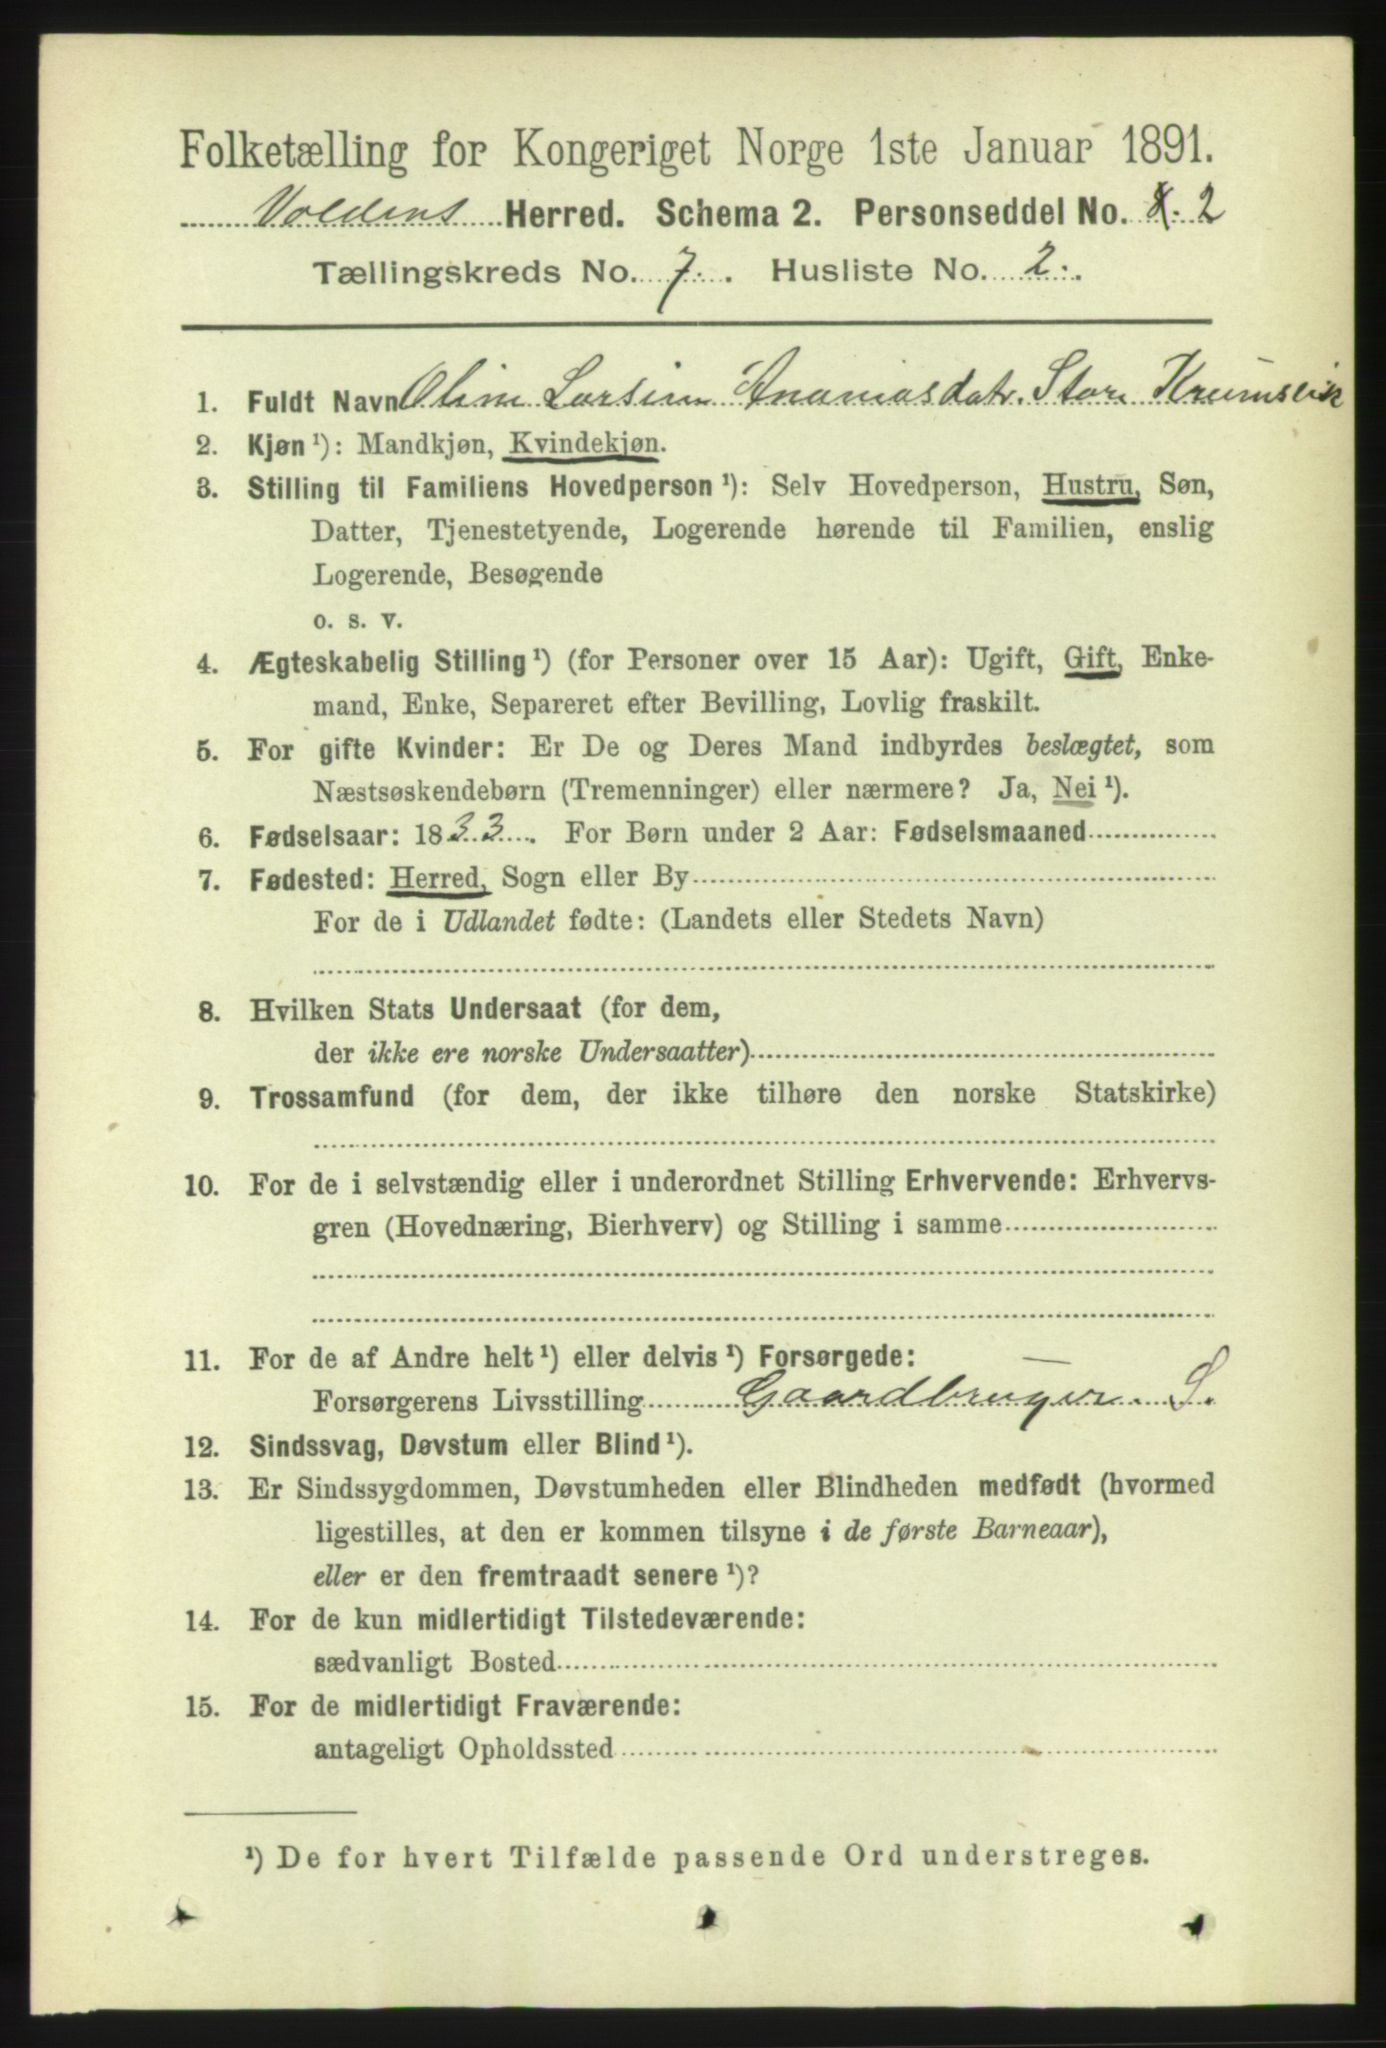 Folketælling for Kongeriget Norge 1ste Januar 1891.
Voldens Herred. Schema 2. Personseddel No. 2
Tællingskreds No. 7. Husliste No. 2.
1. Fuldt Navn Oline Larsine Ananiasdatr. Store
2. Kjøn ¹): Mandkjøn, Kvindekjøn.
3. Stilling til Familiens Hovedperson ¹): Selv Hovedperson, Hustru, Søn,
Datter, Tjenestetyende, Logerende hørende til Familien, enslig
Logerende, Besøgende
o. s. v.
4. Ægteskabelig Stilling ¹) (for Personer over 15 Aar): Ugift, Gift, Enke-
mand, Enke, Separeret efter Bevilling, Lovlig fraskilt.
5. For gifte Kvinder: Er De og Deres Mand indbyrdes beslægtet, som
Næstsøskendebørn (Tremenninger) eller nærmere? Ja, Nei ¹).
6. Fødselsaar: 1833. For Børn under 2 Aar: Fødselsmaaned
7. Fødested: Herred, Sogn eller By
For de i Udlandet fødte: (Landets eller Stedets Navn)
8. Hvilken Stats Undersaat (for dem,
der ikke ere norske Undersaatter)
9. Trossamfund (for dem, der ikke tilhøre den norske Statskirke)
10. For de i selvstændig eller i underordnet Stilling Erhvervende: Erhvervs-
gren (Hovednæring, Bierhverv) og Stilling i samme
11. For de af Andre helt ¹) eller delvis ¹) Forsørgede:
Forsørgerens Livsstilling Gaardbruger. S.
12. Sindssvag, Døvstum eller Blind ¹).
13. Er Sindssygdommen, Døvstumheden eller Blindheden medfødt (hvormed
ligestilles, at den er kommen tilsyne i de første Barneaar),
eller er den fremtraadt senere ¹)?
14. For de kun midlertidigt Tilstedeværende:
sædvanligt Bosted
15. For de midlertidigt Fraværende:
antageligt Opholdssted
¹) De for hvert Tilfælde passende Ord understreges.